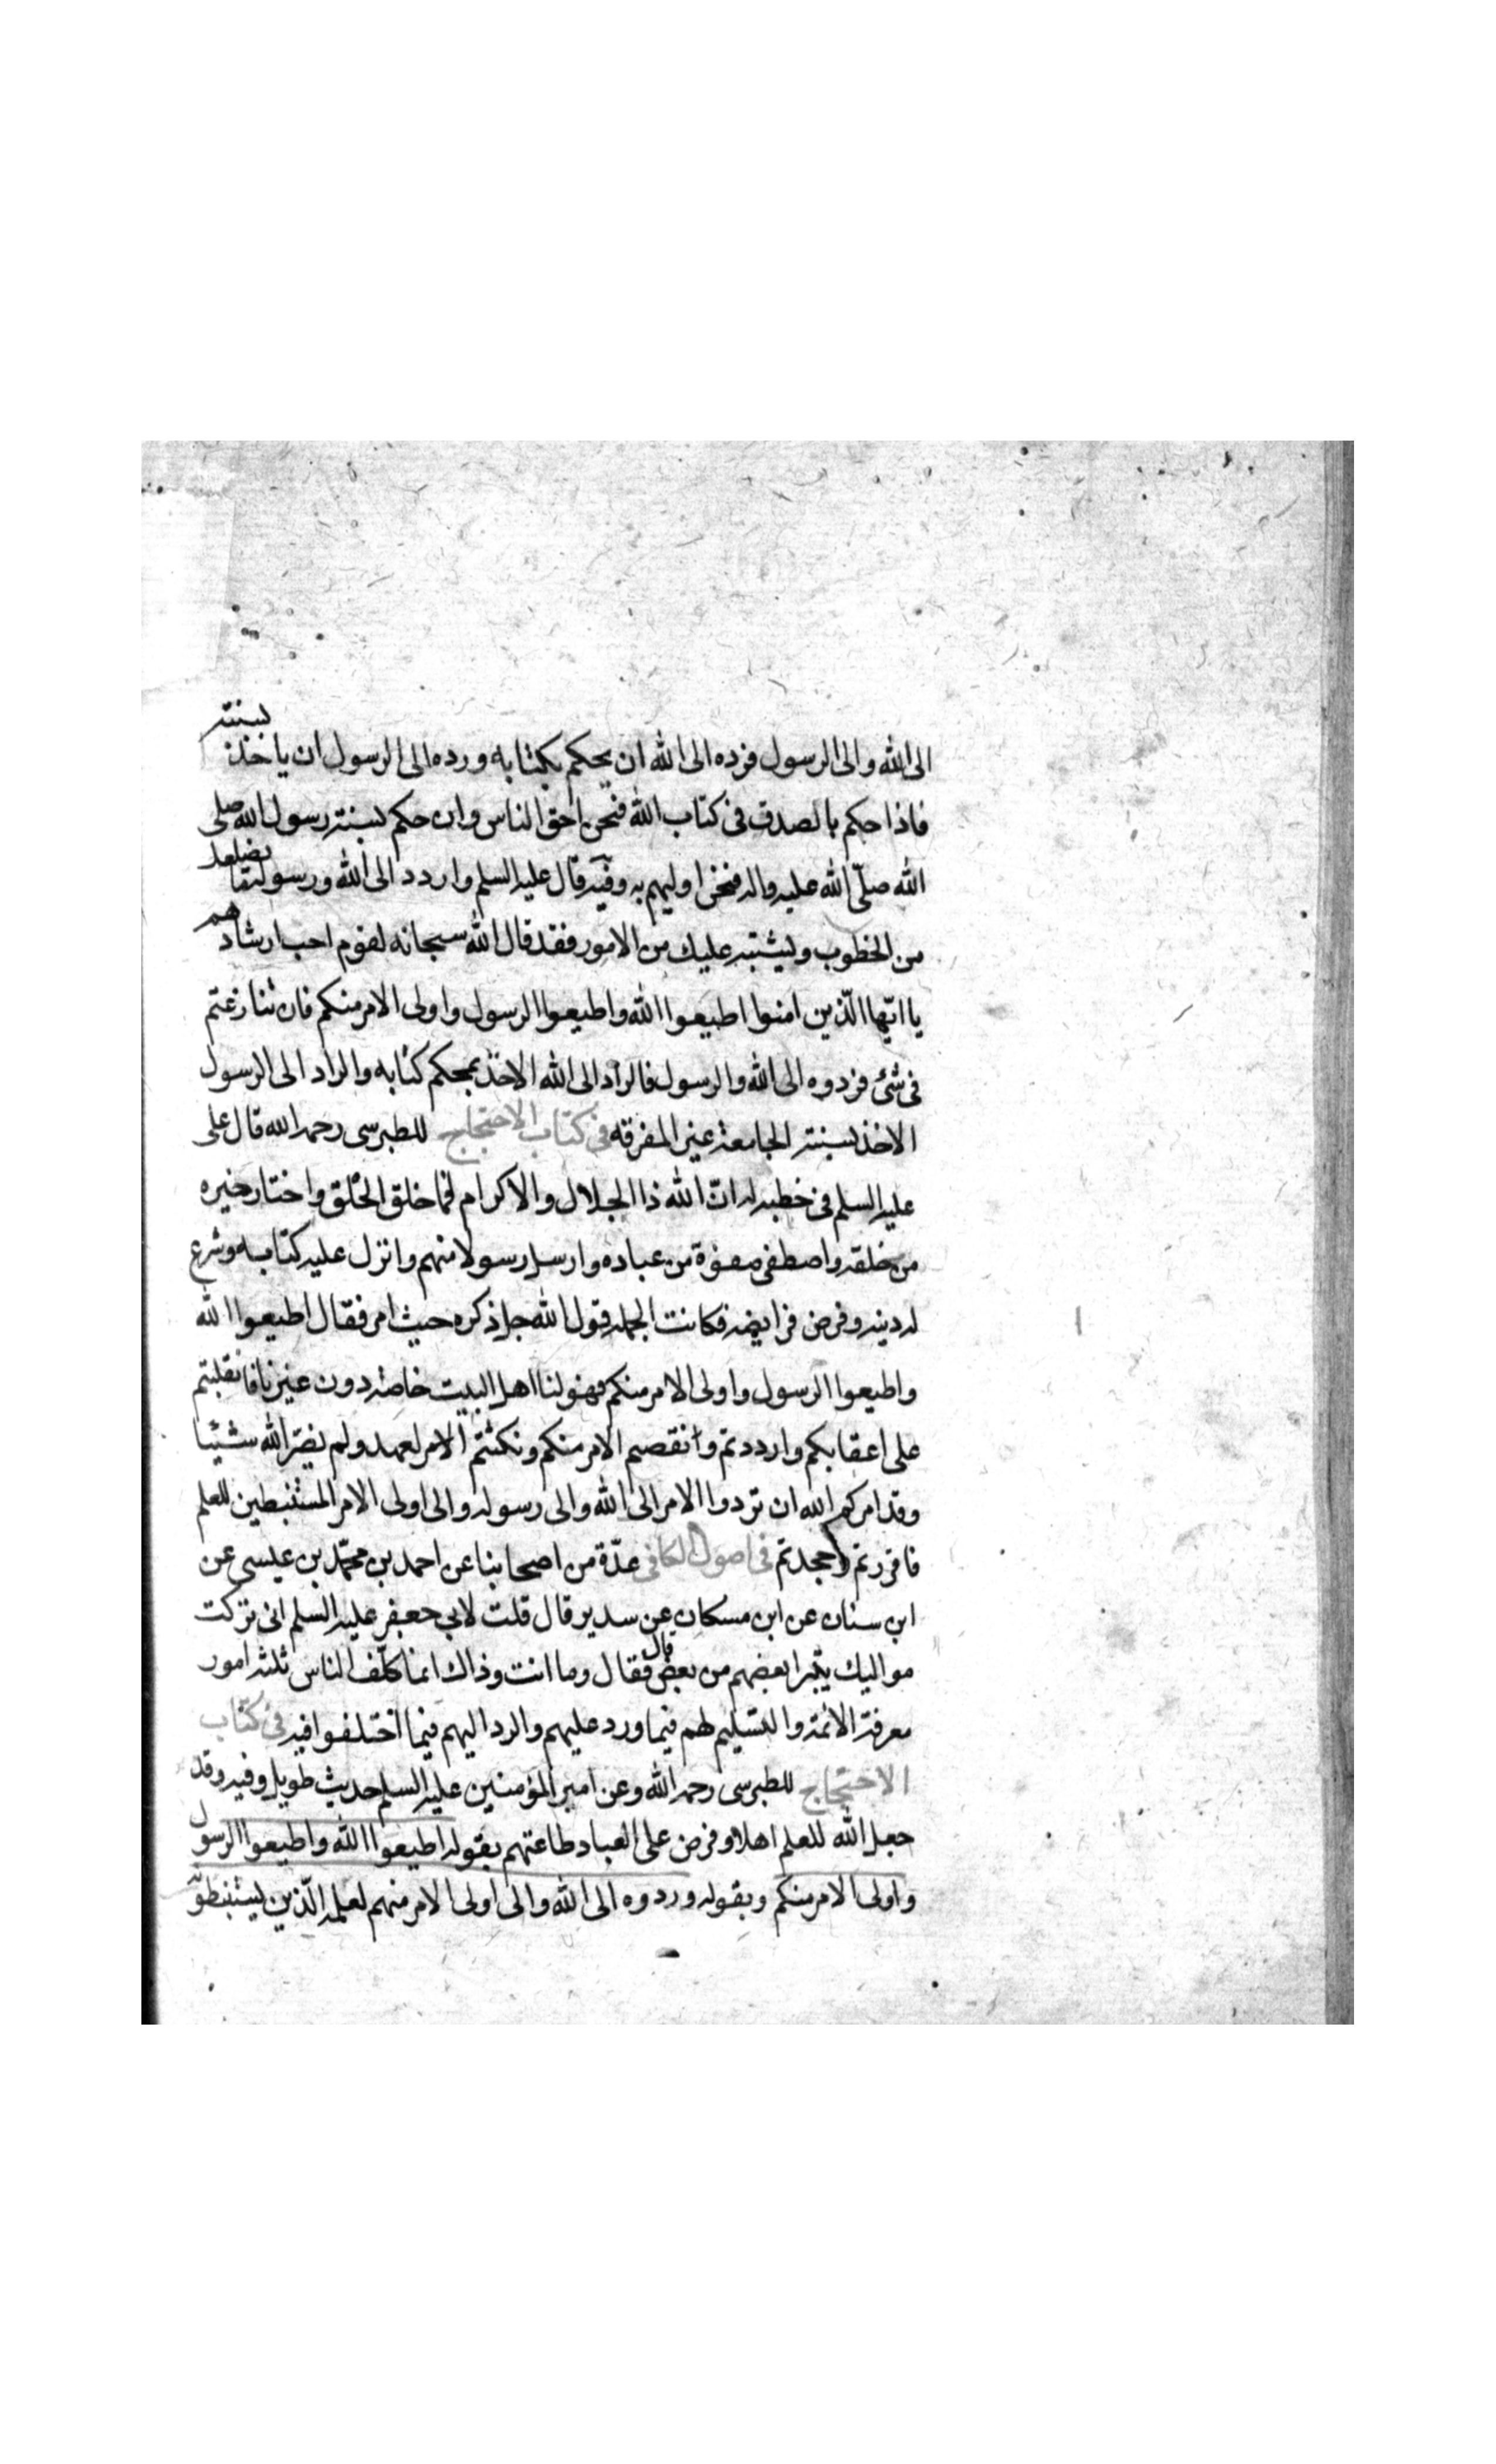 الى الله والى الرسول فرده الى الله ان يحكم بكتابه ورده الى الرسول ان ياخذ بسنته
فاذا حكم بالصدق فى كتاب الله فنحن احق الناس وان حكم بسنته رسول الله صلى
الله صلّى الله عليه واله فنحن اوليهم به وفيه قال عليه السلم واردد الى الله ورسوله ما يضلعك
من الخطوب ويشتبه عليك من الامور فقد قال الله سبحانه لقوم احب ارشادهم
يا ايّها الّذين امنوا اطيعوا الله واطيعوا الرسول واولى الامر منكم فان تنازعتم
فى شئ فردوه الى الله والرسول فالراد الى الله الاخذ بمحكم كتابه والراد الى الرسول
الاخذ بسنته الجامعة غير المفرقه فى كتاب الاحتجاج للطبرسى رحمه الله قال على
عليه السلم فى خطبه له انّ الله ذا الجلال والاكرام لما خلق الخلق واختار خيره
من خلقه واصطفى صفوة من عباده وارسل رسولا منهم وانزل عليه كتابه وشرع
له دينه وفرض فرايضه فكانت الجمله قول الله جل ذكره حيث امر فقال اطيعوا الله
واطيعوا الرسول واولى الامر منكم فهو لنا اهل البيت خاصة دون غيرنا فانقلبتم
على اعقابكم وارددتم وانقصم الامر منكم ونكثتم الامر لعهد ولم يضرّ الله شيئا
وقد امركم الله ان تردوا الامر الى الله والى رسوله والى اولى الامر المستنبطين للعلم
فاقررتم وجحدتم فى اصول الكافى عدّة من اصحابنا عن احمد بن محمّد بن عيسى عن
ابن سنان عن ابن مسكان عن سدير قال قلت لابى جعفر عليه السلم انى تركت
مواليك يتبرا بعضهم من بعض قال فقال وما انت وذاك انما كلّف الناس ثلثه امور
معرفة الائمة والتسليم لهم فيما ورد عليهم والرد اليهم فيما اختلفوا فيه فى كتاب
الاحتجاج للطبرسى رحمه الله وعن امير المؤمنين عليه السلم حديث طويل وفيه وقد
جعل الله للعلم اهلا وفرض على العباد طاعتهم بقوله اطيعوا الله واطيعوا الرسول
واولى الامر منكم وبقوله وردوه الى الله والى اولى الامر منهم لعلمه الّذين يستنبطونه